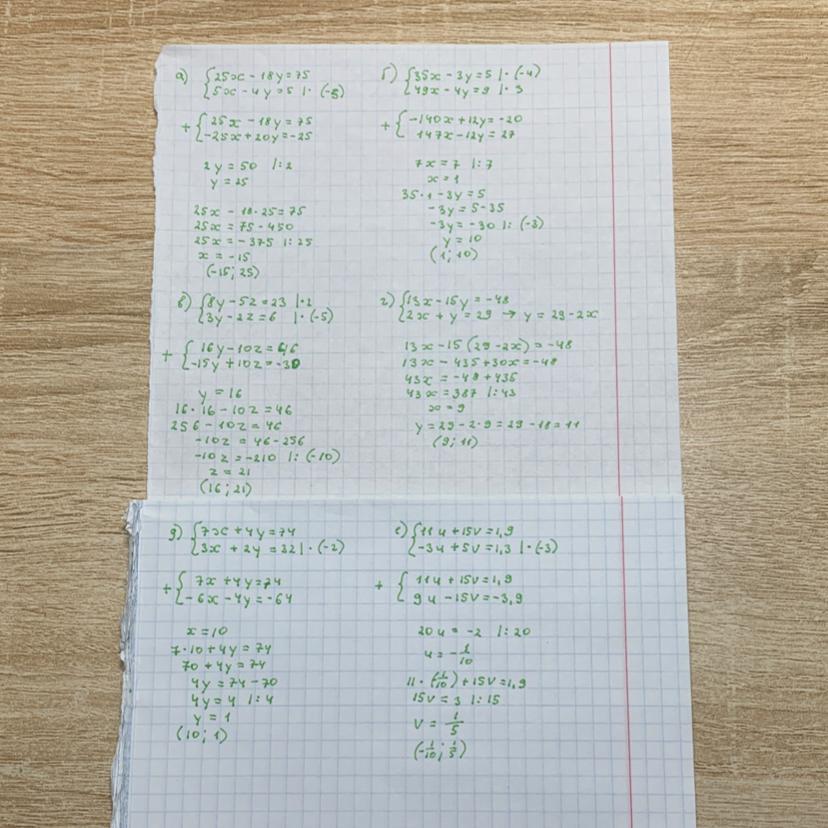 а) {25x - 18y = 75
5x - 4y = 5 | · (-5)
+ {25x - 18y = 75
-25x + 20y = -25
2y = 50 | : 2
y = 25
25x - 18 · 25 = 75
25x = 75 - 450
25x = -375 | : 25
x = -15
(-15; 25)
б) {35x - 3y = 5 | · (-4)
49x - 4y = 9 | · 3
+ {-140x + 12y = -20
147x - 12y = 27
7x = 7 | : 7
x = 1
35 · 1 - 3y = 5
-3y = 5 - 35
-3y = -30 | : (-3)
y = 10
(1; 10)
в) {8y - 5z = 23 | · 2
3y - 2z = 6 | · (-5)
+ {16y - 10z = 46
-15y + 10z = -30
y = 16
16 · 16 - 10z = 46
256 - 10z = 46
-10z = 46 - 256
-10z = -210 | : (-10)
z = 21
(16; 21)
г) {13x - 15y = -48
2x + y = 29 → y = 29 - 2x
13x - 15(29 - 2x) = -48
13x - 435 + 30x = -48
43x = -48 + 435
43x = 387 | : 43
x = 9
y = 29 - 2 · 9 = 29 - 18 = 11
(9; 11)
д) {7x + 4y = 74
3x + 2y = 32 | · (-2)
+ {7x + 4y = 74
-6x - 4y = -64
x = 10
7 · 10 + 4y = 74
70 + 4y = 74
4y = 74 - 70
4y = 4 | : 4
y = 1
(10; 1)
е) {11u + 15v = 1,9
-3u + 5v = 1,3 | · (-3)
+ {11u + 15v = 1,9
9u - 15v = -3,9
20u = -2 | : 20
u = -1/10
11 · (-1/10) + 15v = 1,9
15v = 3 | : 15
v = 1/5
(-1/10; 1/5)